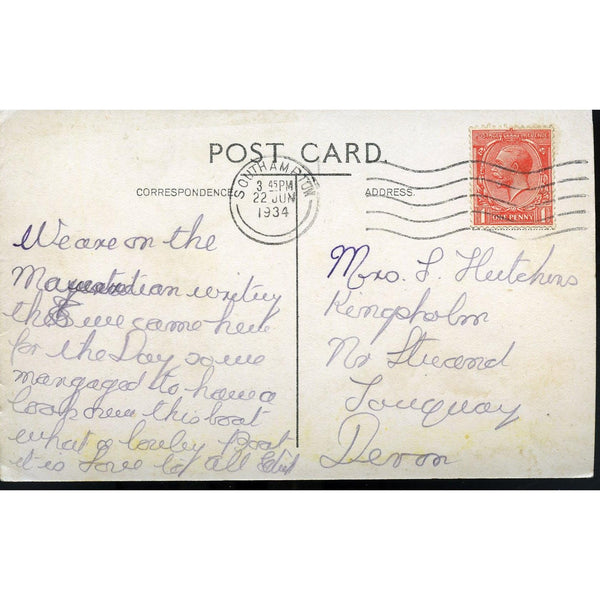 POST CARD.
CORRESPONDENCE.
ADDRESS.
SOUTHAMPTON
3 45 PM
22 JUN
1934
POSTAGE REVENUE
1 ONE PENNY 1
We are on the
writing
this we came here
for the Day so we
mangaged to have a
look over this boat
what a lovley Boat
it is Love to All
Mrs. L Hutchins
Kingsholm
Nr Strand
Torquay
Devon